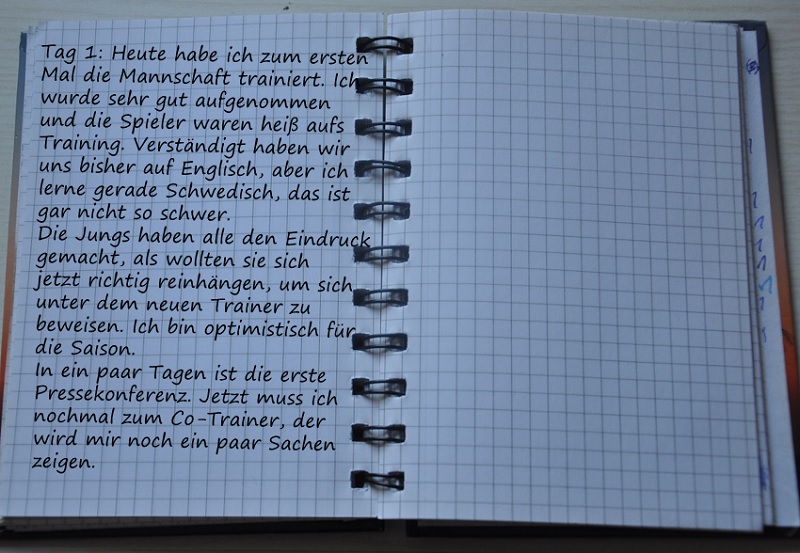 Tag 1: Heute habe ich zum ersten
Mal die Mannschaft trainiert. Ich
wurde sehr gut aufgenommen
und die Spieler waren heiß aufs
Training. Verständigt haben wir
uns bisher auf Englisch, aber ich
lerne gerade Schwedisch, das ist
gar nicht so schwer.
Die Jungs haben alle den Eindruck
gemacht, als wollten sie sich
jetzt richtig reinhängen, um sich
unter dem neuen Trainer zu
beweisen. Ich bin optimistisch für
die Saison.
In ein paar Tagen ist die erste
Pressekonferenz. Jetzt muss ich
nochmal zum Co-Trainer, der
wird mir noch ein paar Sachen
zeigen.